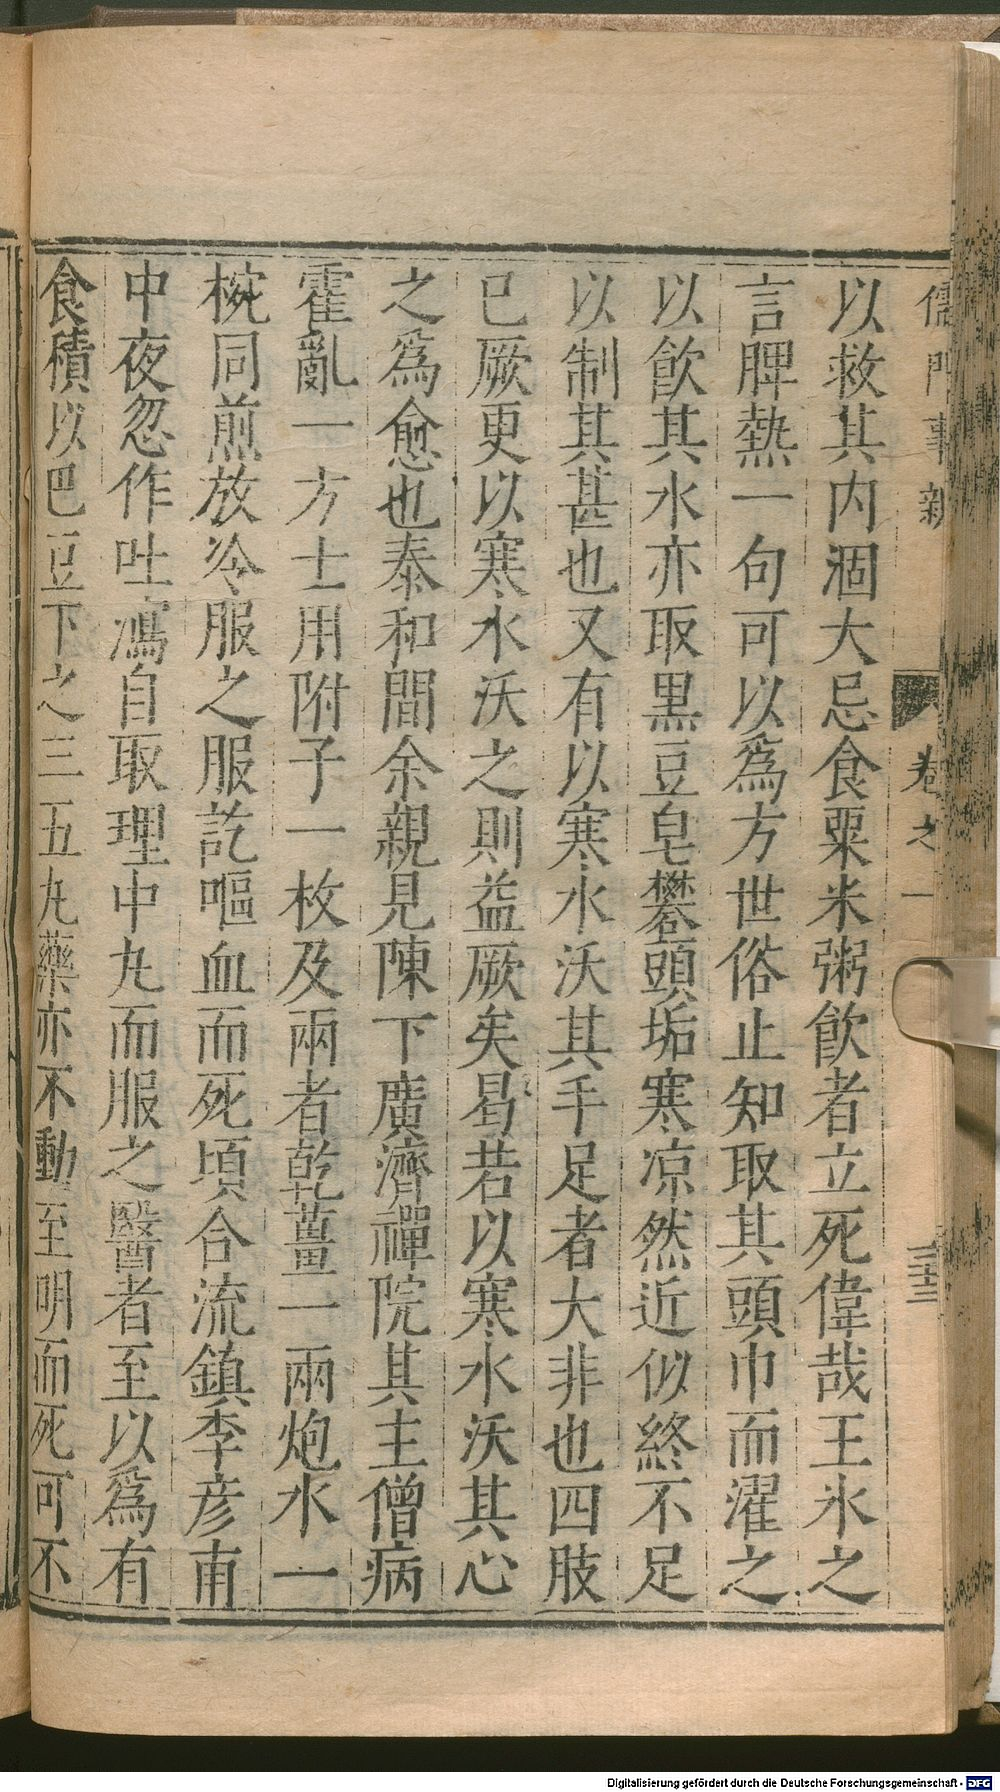 儒門事親 卷之一 三十三
以救其内涸大忌食粟米粥飮者立死偉哉王氷之
言脾熱一句可以爲方世俗止知取其頭巾而濯之
以飮其水亦取黒豆皂礬頭垢寒凉然近似終不足
以制其甚也又有以寒水沃其手足者大非也四肢
已厥更以寒水沃之則益厥矣曷若以寒水沃其心
之爲愈也泰和間余親見陳下廣濟禪院其主僧病
霍亂一方士用附子一枚及兩者乾薑一兩炮水一
椀同煎放冷服之服訖嘔血而死頃合流鎮李彦甫
中夜忽作吐瀉自取理中丸而服之醫者至以爲有
食積以巴豆下之三五丸藥亦不動至明而死可不
Digitalisierung gefördert durch die Deutsche Forschungsgemeinschaft - DFG